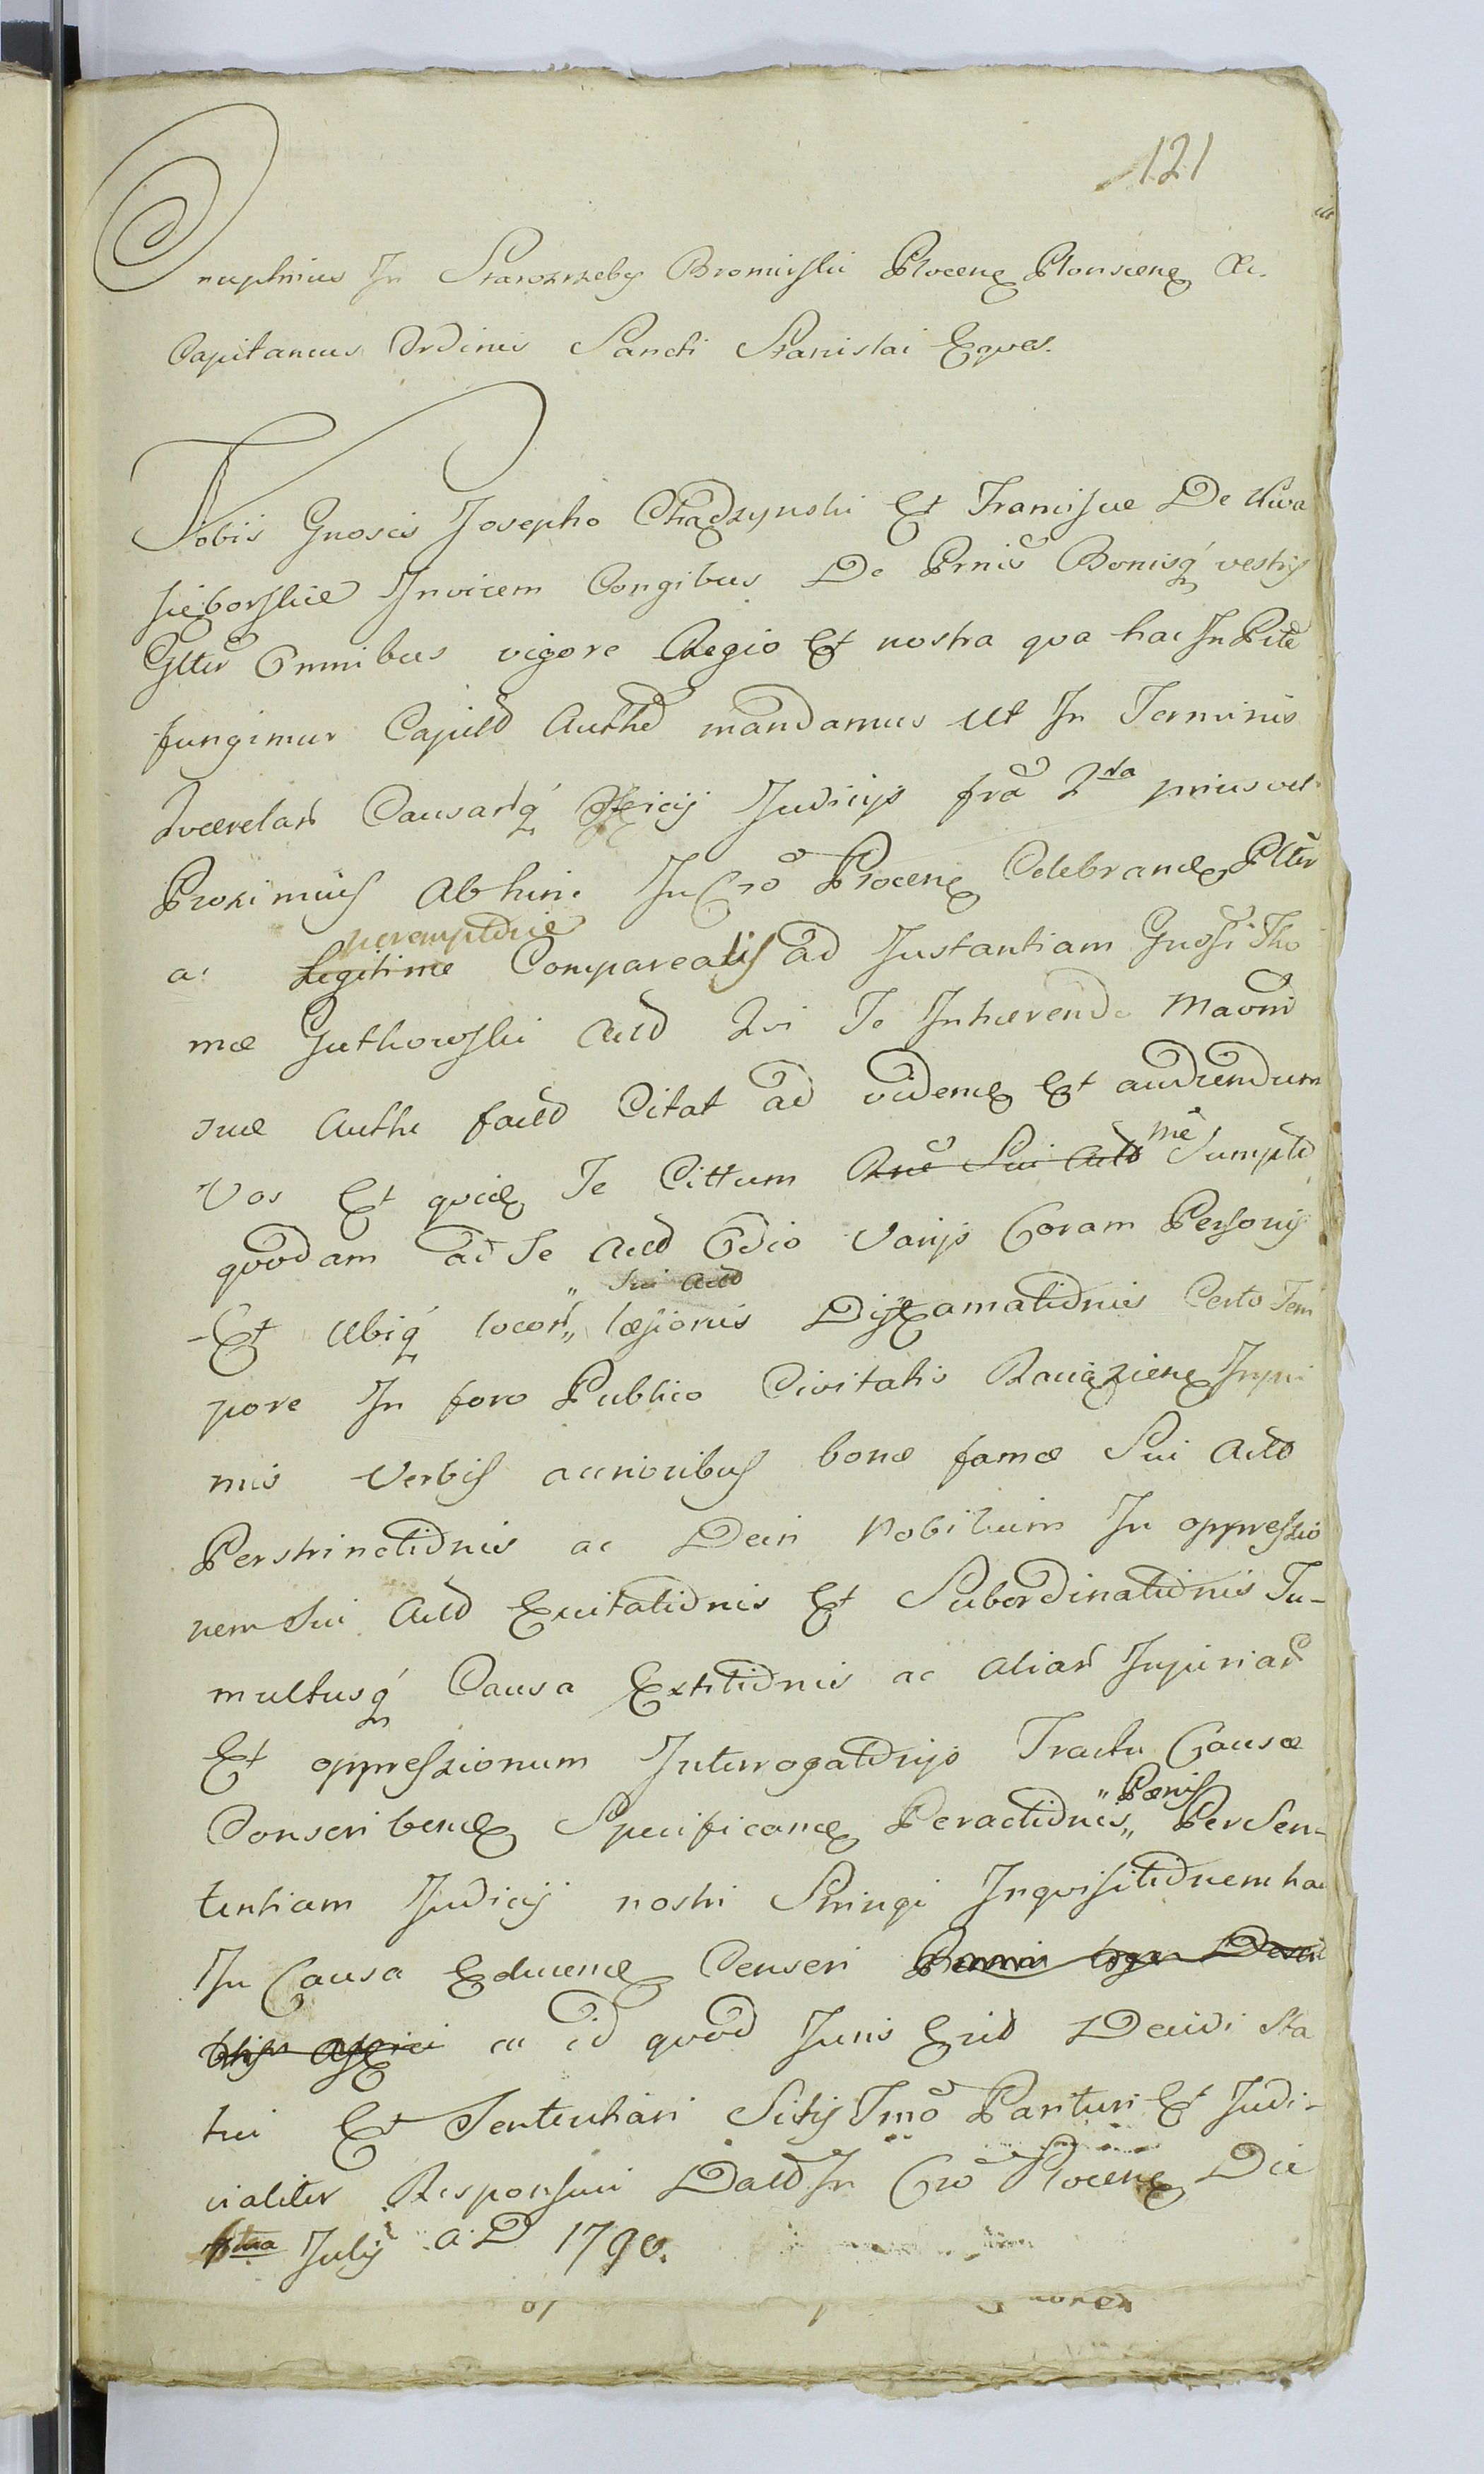 121
Onuphrius In Starozrzeby Bromirski Plocen Plonscen &c.
Capitaneus Ordinis Sancti Stanislai Eques.
Vobis Gnosis Josepho Chądzynski Et Francisce De Niwa
sięborskie Invicem Congibus De Prnis Bonisq vestris
Gltr Omnibus vigore Regio Et nostra qva hac In Pite
fungimur Capild Authe mandamus ut In Terminis
Qværelar Causarq Officij Judicijs fra 2da prius vel
Proximius Abhinc In Cro Plocen Celebrand Pltr
ac Legitime peremptorie Compareatis ad Instantiam Gnosi Tho
mæ Gutkowski Actd Qvi Te Inhærendo Maoni
suæ Authe factd Citat ad videnد Et audiendum
Vos Et qvid Te Cittum Rne Sui Actd me Sumptd
qvodam ad Se Actd Odio Varijs Coram Personis
Et Ubiq locor „ Sui Actd
læsionis Diffamationis Certo Tem
pore In foro Publico Civitatis Raciązien Inpri
mis Verbis acrioribus bonæ famæ Sui Actd
Perstrinctionis ac Dein Nobilium In oppressio
nem Sui Actd Excitationis Et Subordinationis Tu-
multusq Causa Extitionis ac aliar Injuriar
Et oppressionum Interrogatorijs Tractu Causæ
Conscribend Specificand Peractionis „ Pænis Per Sen-
tentiam Judicij nostri Stringi Inqvisitionem hac
In Causa Educend Censeri
ac id qvod Juris Erit Decidi Sta
tui Et Sententiari Sitis Tmo Parituri Et Judi-
cialiter Responsuri Datd In Cro Plocen Die
July A: D 1790.